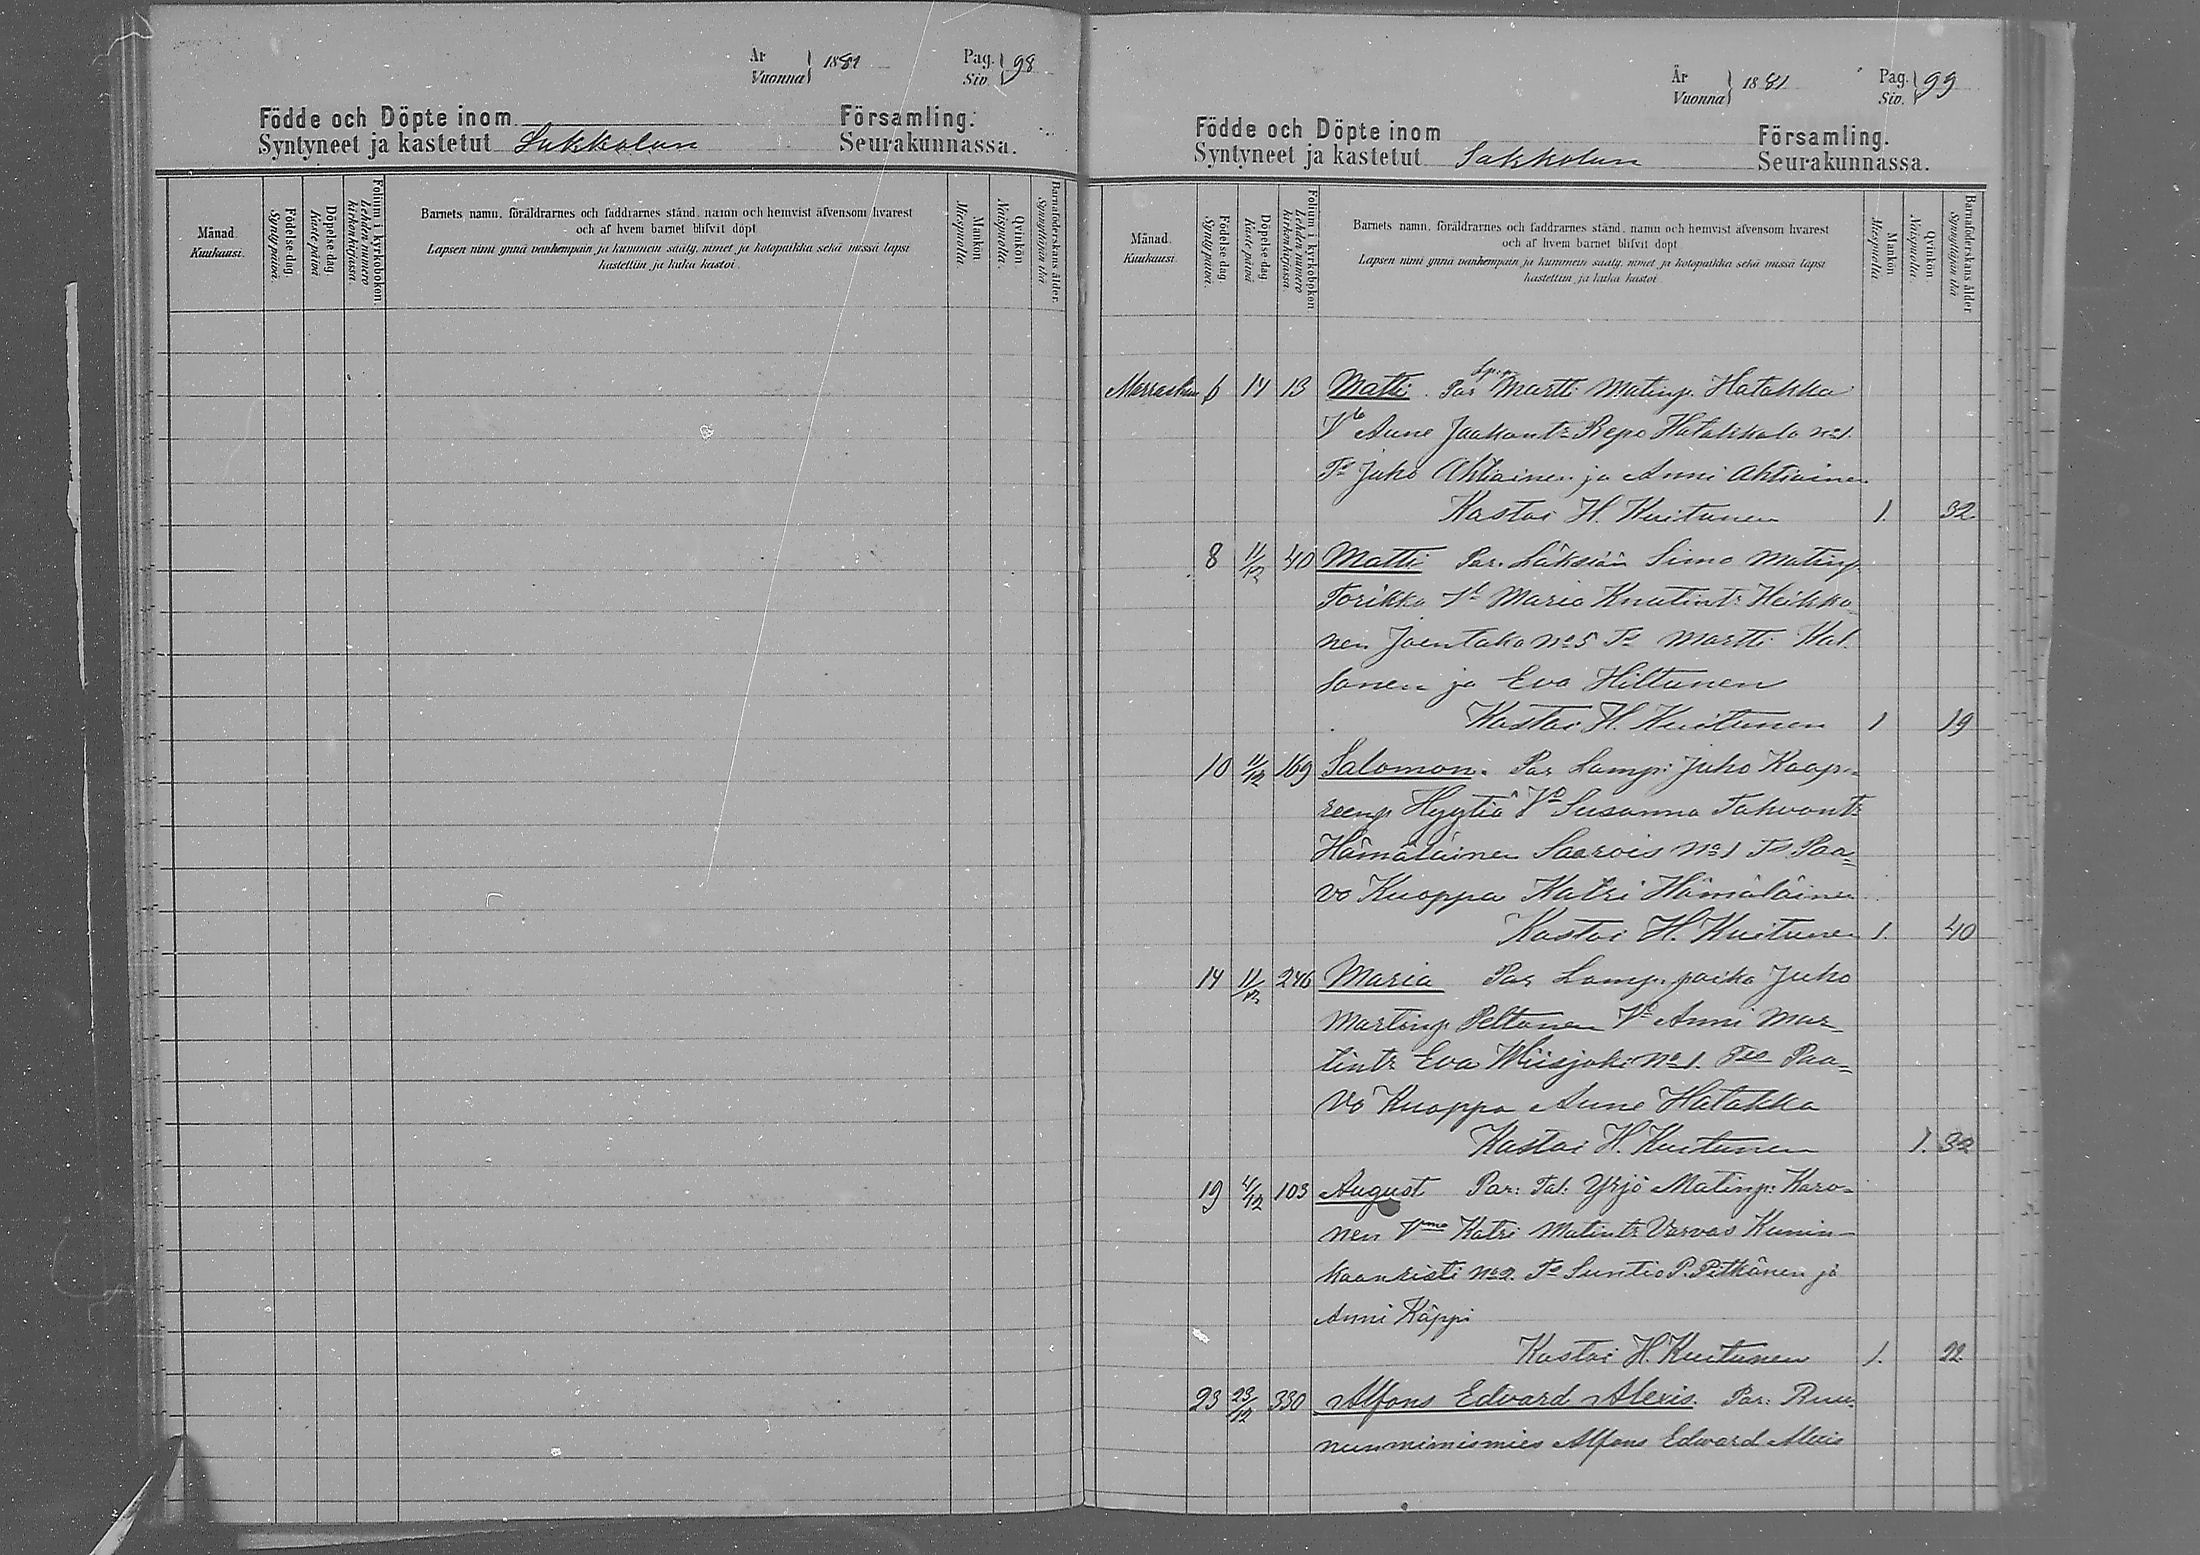 År
Vuonna } 1881
Pag.
Siv. } 98
Födde och Döpte inom Församling.
Syntyneet ja kastetut Sakkolan Seurakunnassa.
Månad
Kuukausi.
Födelse dag.
Synty päivä.
Döpelse dag
Kaste päivä
Folium i kyrkoboken.
Lehden numero
kirkonkirjassa.
Barnets namn, föräldrarnes och faddrarnes stånd, namn och hemvist äfvensom hvarest
och af hvem barnet blifvit döpt.
Lapsen nimi ynnä vanhempain ja kummein sääty, nimet ja kotopaikka sekä missä lapsi
kastettiin ja kuka kastoi.
Mankön
Miespuolia.
Qvinkön
Naispuolia.
Barnaföderskans ålder.
Synnyttäjän ikä
År
Vuonna } 1881
Pag.
Siv. } 99
Födde och Döpte inom Församling.
Syntyneet ja kastetut Sakkolan Seurakunnassa.
Månad
Kuukausi.
Födelse dag.
Synty päivä.
Döpelse dag
Kaste päivä
Folium i kyrkoboken
Lehden numero
kirkonkirjassa.
Barnets namn, föräldrarnes och faddrarnes stånd, namn och hemvist äfvensom hvarest
och af hvem barnet blifvit döpt
Lapsen nimi ynnä vanhempain ja kummein sääty, nimet ja kotopaikka sekä missä lapsi
kastettiin ja kuka kastoi.
Mankön
Miespuolia.
Qvinkön
Naispuolia.
Barnaföderskans ålder
Synnyttäjän ikä
Marraskuu 6 14 13 Matti. Par Martti Matinp. Hatakka
Vo Anne Jaakontr Repo Hatakkala No 1.
To Juho Ahtiainen ja Anni Ahtiainen
Kastoi H. Kuitunen 1. 32
8 11/12 40 Matti Par. Läksiän Simo Matinp
Torikka Vo Maria Knutintr Heikko
nen Joentaka No 5 To Martti Kal.
sonen ja Eva Hiltunen
Kastoi H. Kuitunen 1 19
10 11/12 169 Salomon. Par Lamp: Juho Kaap=
reenp. Hyytiä Vo Susanna Tahvontr
Hämäläinen Saarois No 1 To Paa=
vo Kuoppa Katri Hämäläinen
Kastoi H. Kuitunen 1. 40
14 11/12 246 Maria Par Lamp. poika Juho
Martinp. Peltonen Vo Anni Mar
tintr Eva Wiisjoki No 1. Tto Paa=
vo Kuoppa Anne Hatakka
Kastoi H. Kuitunen 1. 32
19 4/12 103 August Par: Tal: Yrjö Matinp: Karo=
nen Vmo Katri Matintr Varvas Kunin=
kaanristi No 2. To Suntio P. Pitkänen ja
Anni Käppi
Kastoi H. Kuitunen 1. 22
23 23/12 330 Alfons Edvard Alexis. Par: Ruu=
nunnimismies Alfons Edvard Alexis